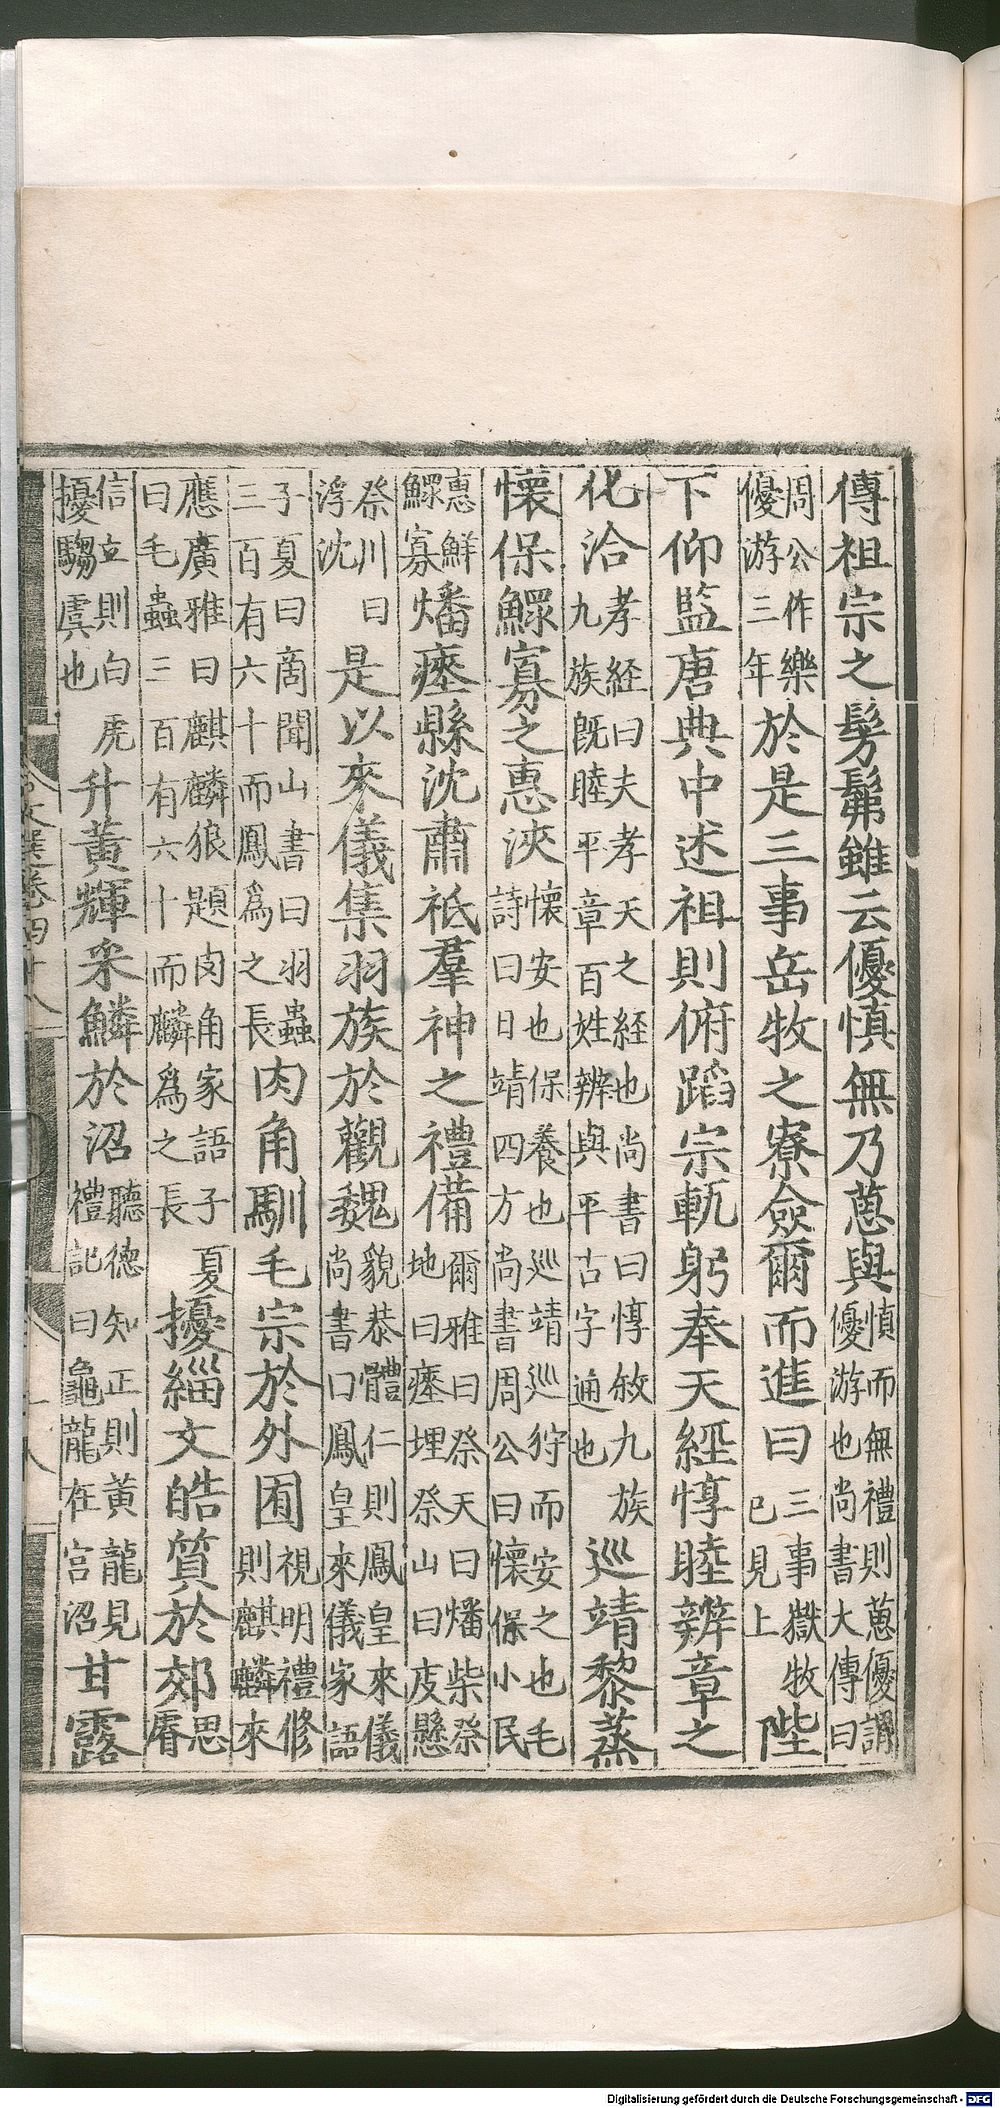 傳祖宗之髣髴雖云優慎無乃葸與慎而無禮則葸優謂優游也尚書大傳曰
周公作樂優游三年於是三事岳牧之寮僉爾而進曰三事嶽牧已見上陛
下仰監唐典中述祖則俯蹈宗軌躬奉天經惇睦辨章之
化洽孝経曰夫孝天之経也尚書曰惇敘九族九族既睦平章百姓辨與平古字通也巡靖黎蒸
懷保鰥寡之惠浹懷安也保養也巡靖巡狩而安之也毛詩曰日靖四方尚書周公曰懷保小民
惠鮮鰥寡燔瘞縣沈肅祗羣神之禮備爾雅曰祭天曰燔柴祭地曰瘞埋祭山曰庋懸
祭川曰浮沈是以來儀集羽族於觀魏貌恭體仁則鳳皇來儀尚書曰鳳皇來儀家語
子夏曰啇聞山書曰羽蟲三百有六十而鳳爲之長肉角馴毛宗於外囿視明禮修則麒麟來
應廣雅曰麒麟狼題肉角家語子夏曰毛蟲三百有六十而麟爲之長擾緇文皓質於郊思睿
信立則白虎擾騶虞也升黃輝采鱗於沼聽德知正則黃龍見禮記曰龜龍在宮沼甘露
文選卷四十八
Digitalisierung gefördert durch die Deutsche Forschungsgemeinschaft - DFG